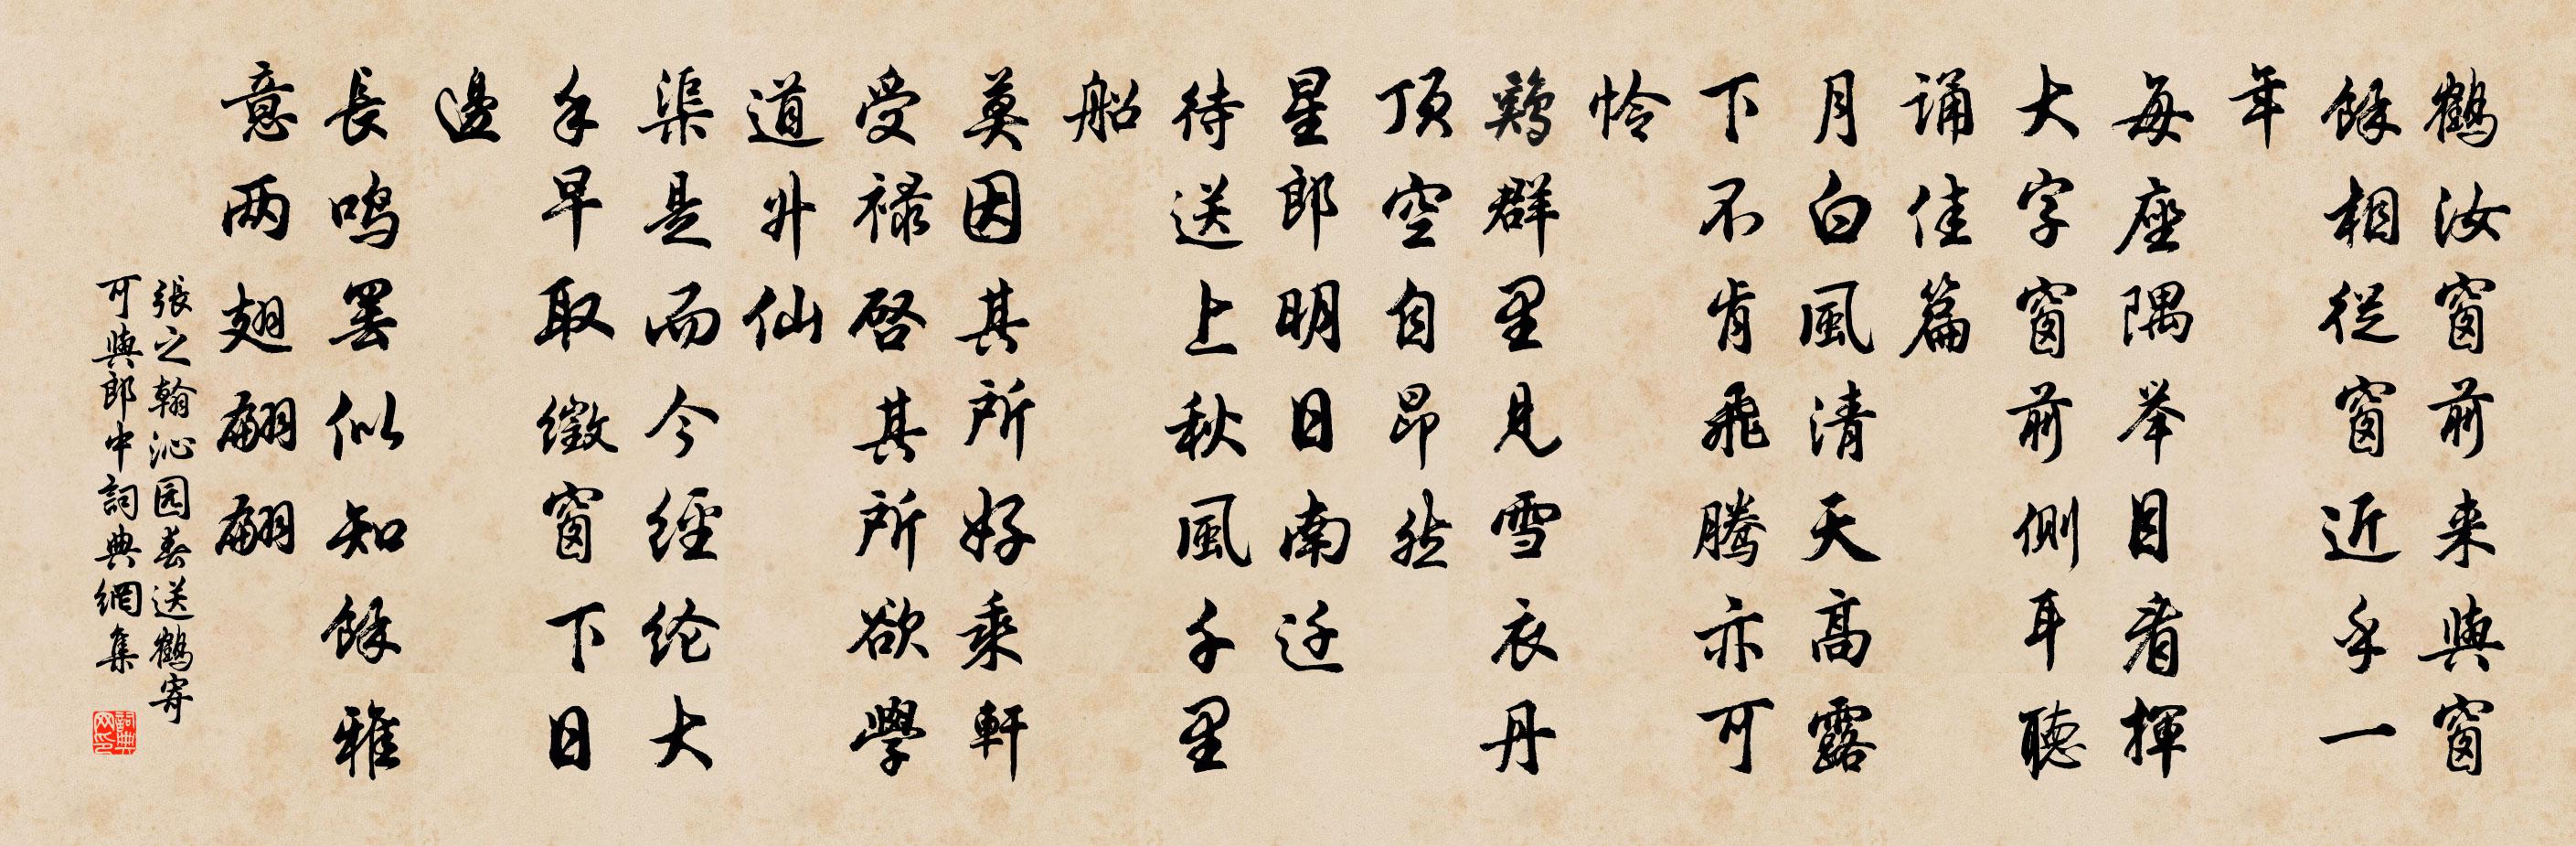 鶴汝窗前来與窗
餘相從窗近乎一
年
每座隅举目看揮
大字窗前側耳聽
诵佳篇
月白風清天高露
下不肯飛腾亦可
怜
鶏群里見雪衣丹
頂空自昂然
星郎明日南迁
待送上秋風千里
船
莫因其所好乘軒
受禄啓其所欲學
道升仙
渠是而今經纶大
手早取徵窗下日
邊
長鸣罢似知餘雅
意两翅翩翩
張之翰沁园春送鶴寄
可與郎中詞典網集
詞典网印